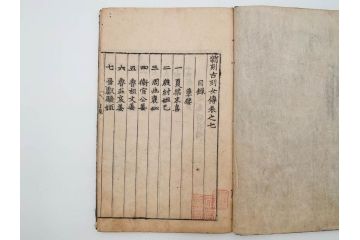 新刻古列女傳卷之七
目錄
孽嬖
一 夏桀末喜
二 殷紂妲己
三 周幽褒姒
四 衛宣公姜
五 魯桓文姜
六 魯莊哀姜
七 晉獻驪姬